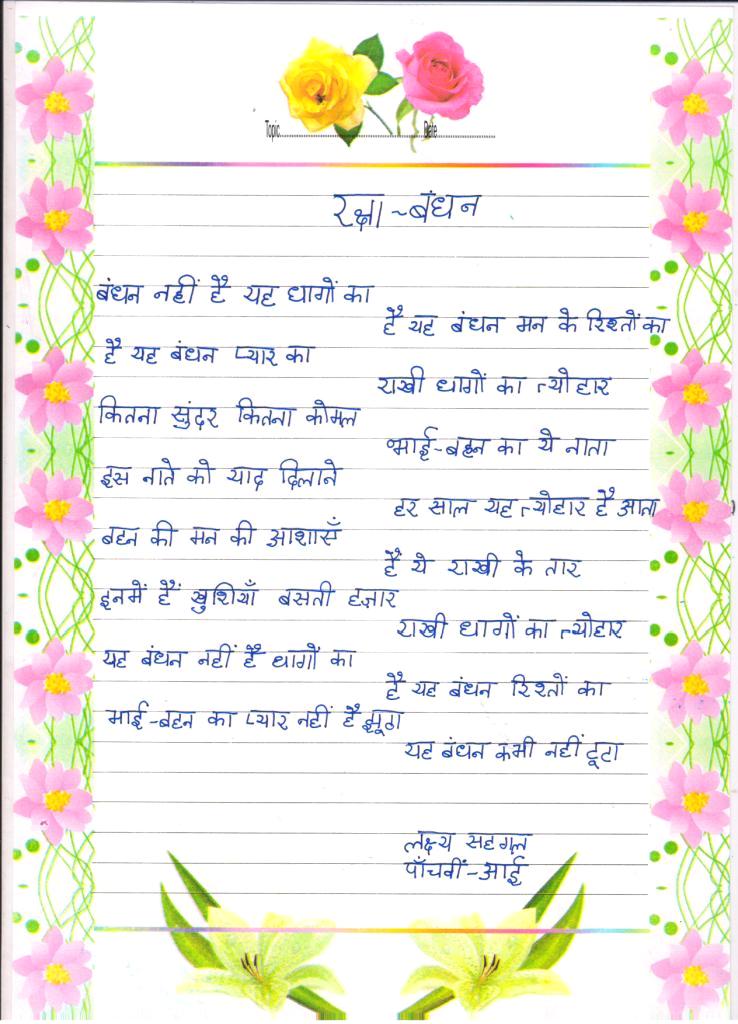 Topic Date
रक्षा ~बंधन
बंधन नहीं है यह धागों का
है यह बंधन मन के रिश्तों का
है यह बंधन प्यार का
राखी धागों का त्योहार
कितना सुंदर कितना कोमल
भाई-बहन का ये नाता
इस नाते को याद दिलाने
हर साल यह त्योहार है आता
बहन की मन की आशाएँ
है ये राखी के तार
इनमें हैं खुशियाँ बसती हज़ार
राखी धागों का त्योहार
यह बंधन नहीं है धागों का
है यह बंधन रिश्तों का
भाई-बहन का प्यार नहीं है झूठा
यह बंधन कभी नहीं टूटा
लक्ष्य सहगल
पाँचवीं-आई